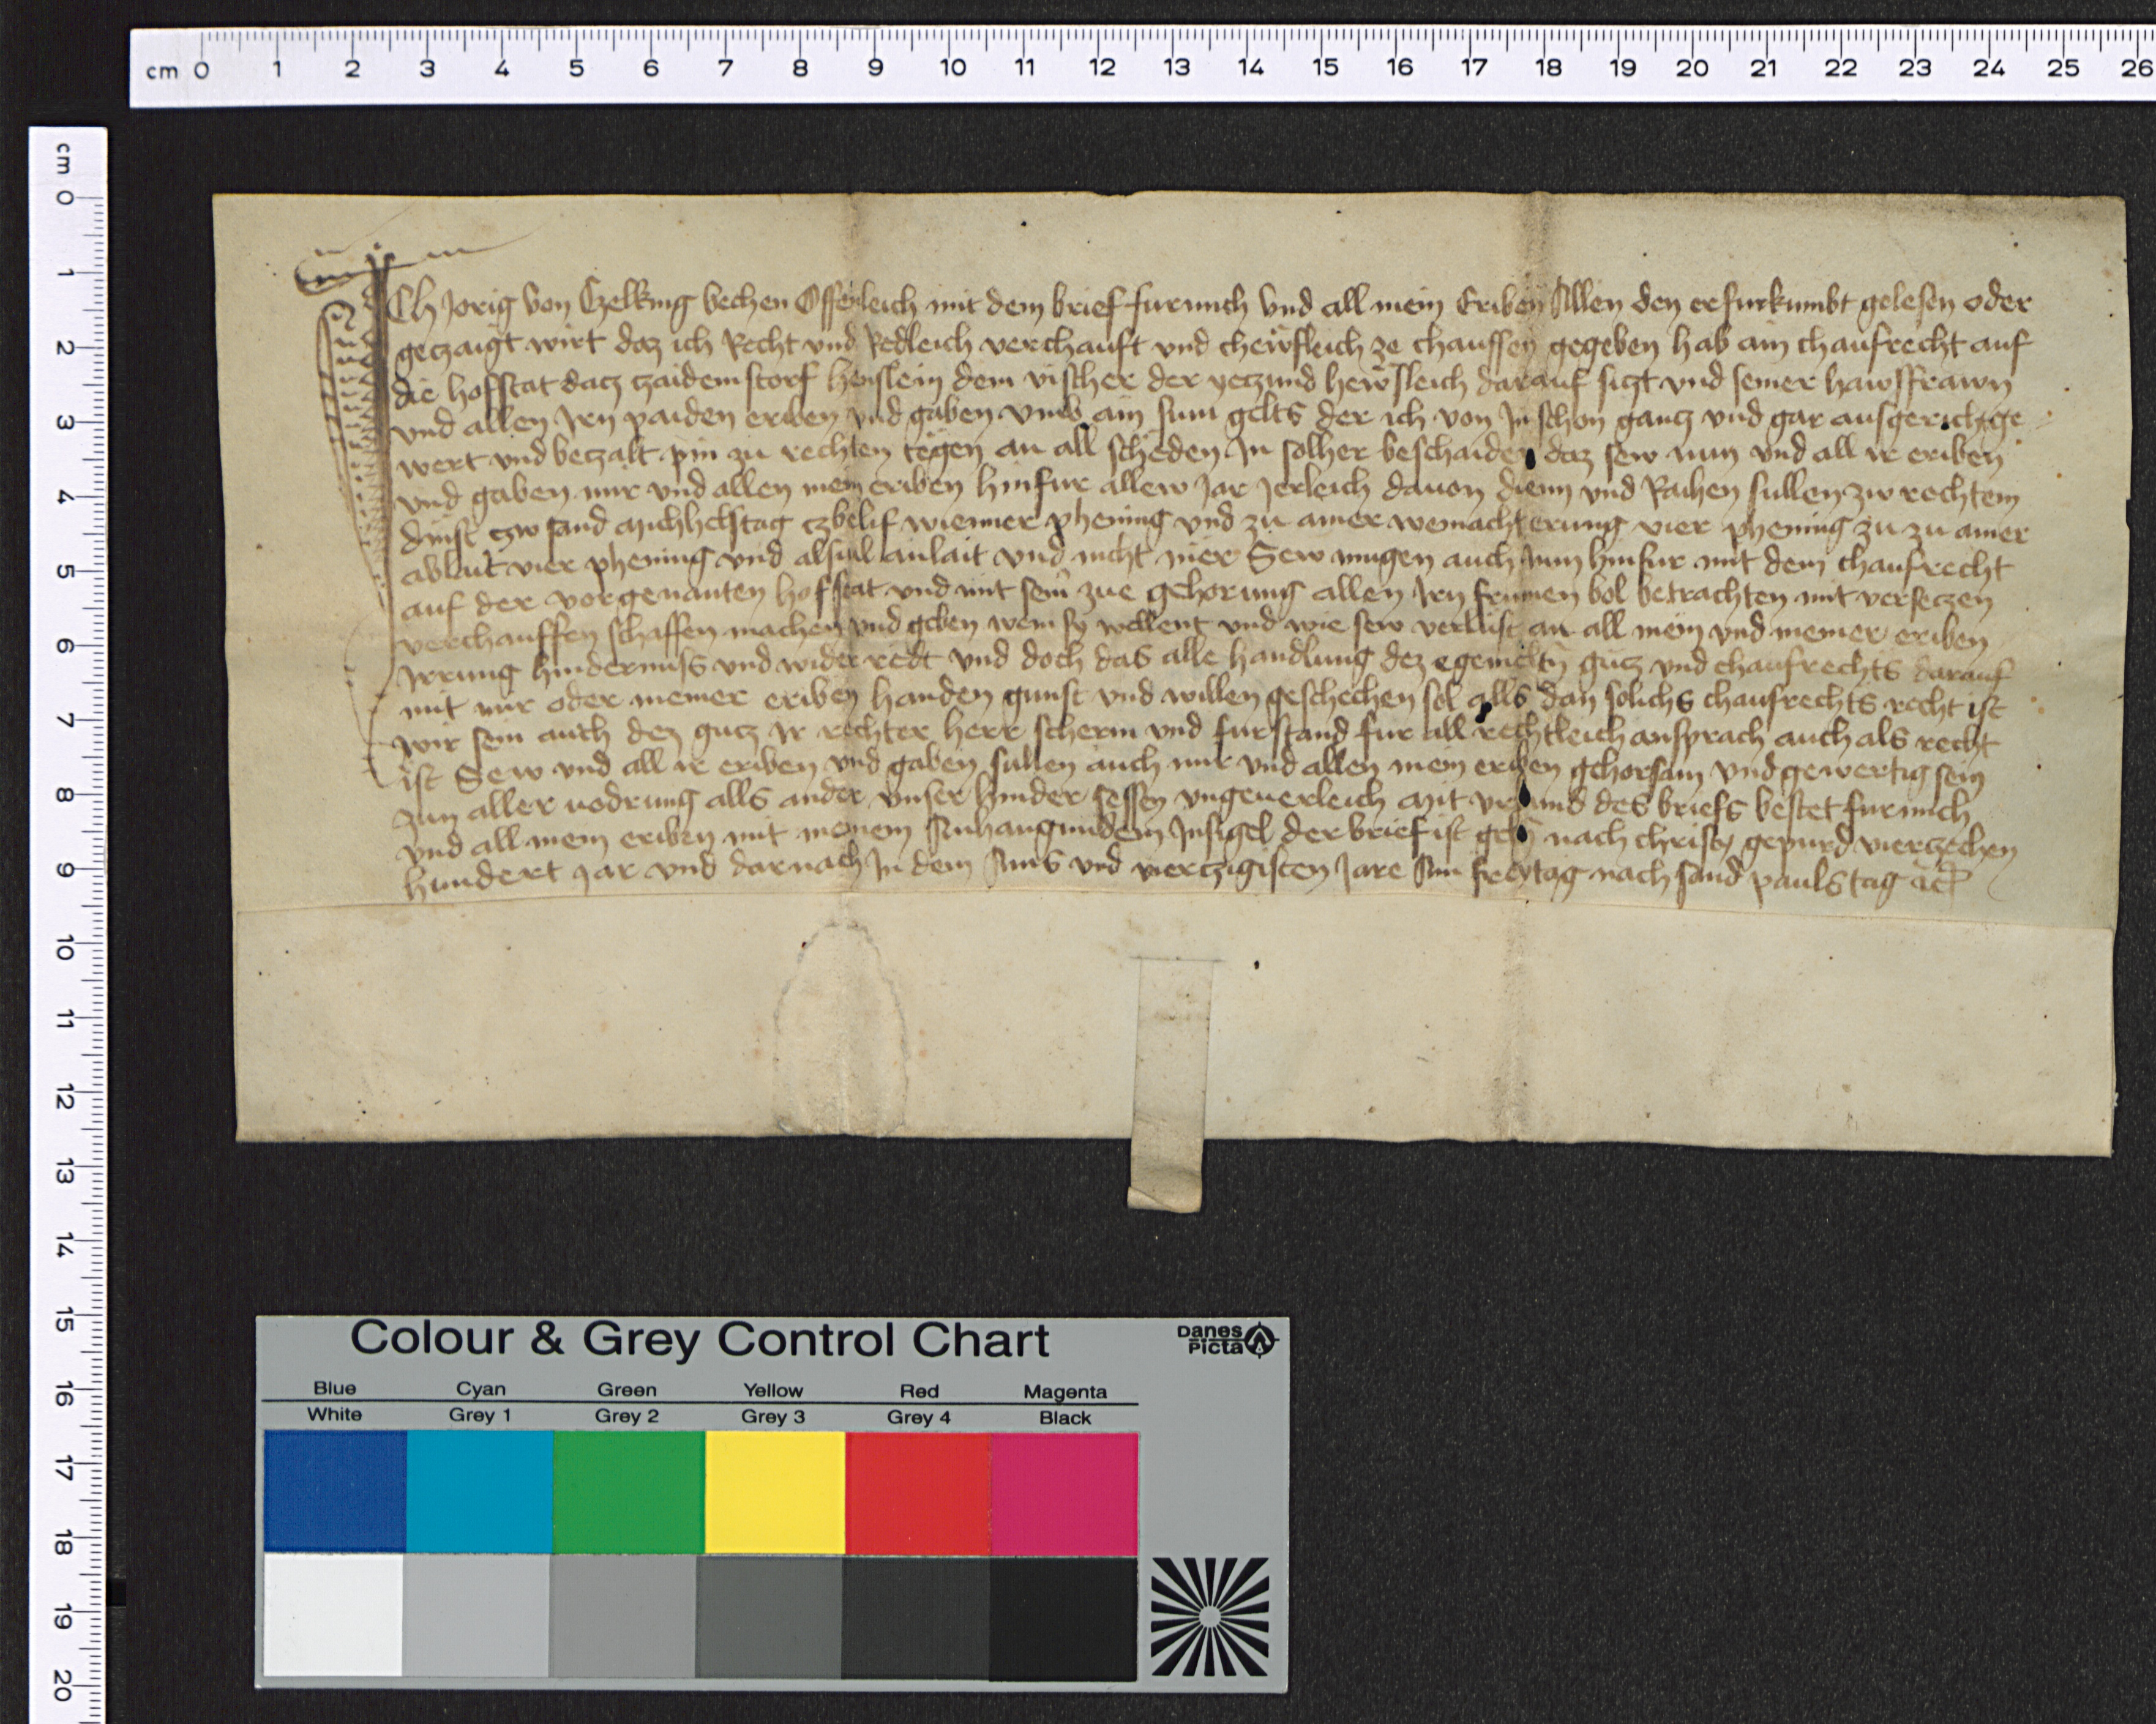 cm 0 1 2 3 4 5 6 7 8 9 10 11 12 13 14 15 16 17 18 19 20 21 22 23 24 25 26
cm 0 1 2 3 4 5 6 7 8 9 10 11 12 13 14 15 16 17 18 19 20
ICh Jorig von Czelking vechen Offenleich mit dem brief fur mich vnd all mein Eriben Allen den er furkumbt gelesen oder
geczaigt wirt daz ich Recht vnd Redleich verchauft vnd chewfleich ze chauffen gegeben hab ain chaufrecht auf
die hofstat datz czaidemstorf henslein dem vischer der yeczund hewsleich darauf siczt vnd seiner hawsfrawn
vnd allen Irn paiden eriben vnd gaben vmb ain sum gelts der ich von In schon gancz vnd gar ausgericht ge
wert vnd beczalt pin zu rechten tegen an all scheden In solher beschaiden daz sew nun vnd all ir eriben
vnd gaben mir vnd allen mein eriben hinfur allew Jar Jerleich dauon dienn vnd Raihen sullen zw rechtem
dinst czw sand Michhelstag czbelif wienner phening vnd zu ainer weinacht erung vier phening zu zu ainer
ablait vier phening vnd alsuil anlait vnd nicht mer Sew mugen auch nun hinfur mit dem chaufrecht
auf der vorgenanten hofstat vnd mit sein zue gehorung allen Irn frumen bol betrachten mit verseczen
verchauffen schaffen machen vnd geben wem sy wellent vnd wie sew verlust an all mein vnd meiner eriben
Irrung hindernuss vnd wider redt vnd doch das alle handlung dez egemeltn gucz vnd chaufrechts darauf
mit mir oder meiner eriben handen gunst vnd willen geschechen sol alls dan solichs chaufrechts recht ist
wir sein auch dez gucz Ir rechter herr scherm vnd furstand fur all rechtleich ansprach auch als recht
ist Sew vnd all ir eriben vnd gaben sullen auch mir vnd allen mein eriben gehorsam vnd gewertig sein
zun aller uodrung alls ander vnser hinder sessen vngeuerleich Mit vrkund des briefs bestet fur mich
vnd all mein eriben mit meinem Anhangundem Insigel der brief ist gebn nach christy gepurd vierczechen
hundert Jar vnd darnach In dem Ains vnd vierczigisten Jare Am freytag nach sand pauls tag
Colour & Grey Control Chart
Danes Picta
Blue Cyan Green Yellow Red Magenta
White Grey 1 Grey 2 Grey 3 Grey 4 Black